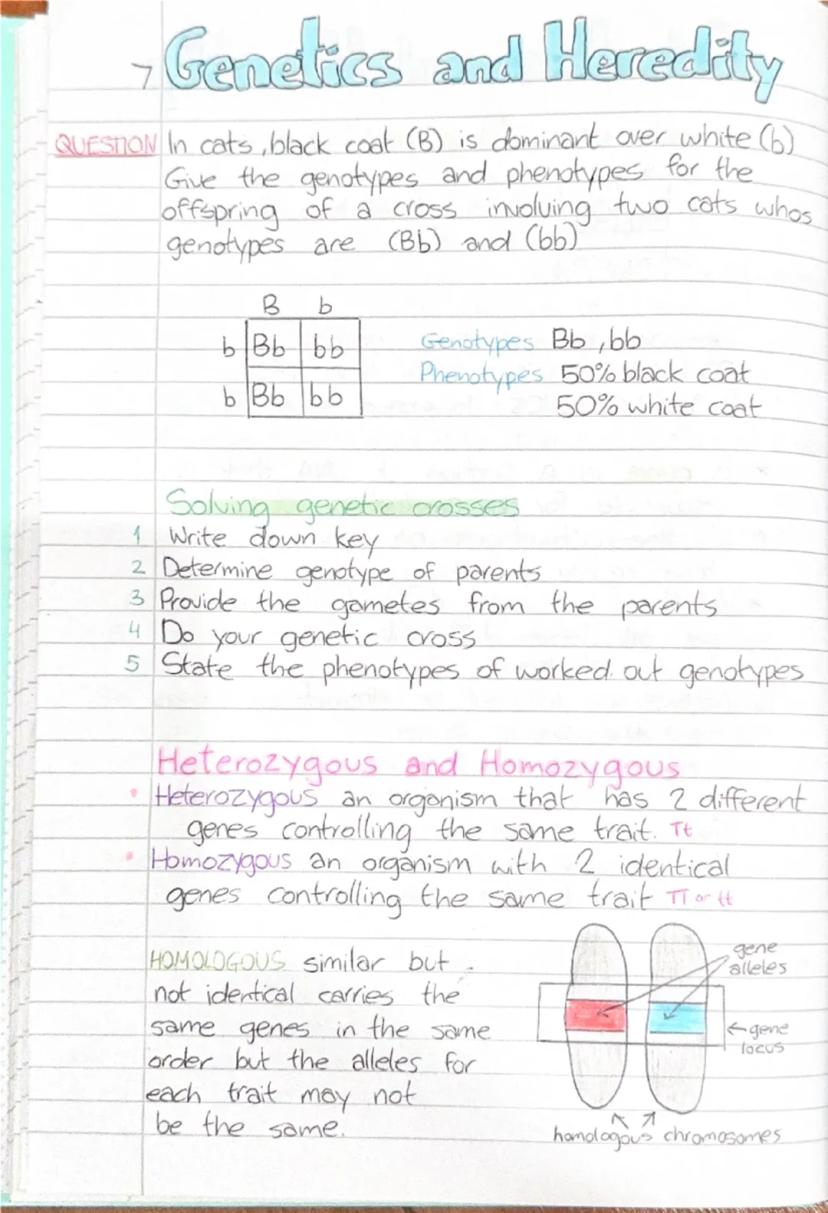 7 Genetics and Heredity
QUESTION In cats, black coat (B) is dominant over white (b)
Give the genotypes and phenotypes for the
offspring of a cross involving two cats whos
genotypes are (Bb) and (bb)
B b
b Bb bb
b Bb bb
Genotypes Bb, bb
Phenotypes 50% black coat
50% white coat
Solving genetic crosses
1 Write down key
2 Determine genotype of parents
3 Provide the gametes from the parents
4 Do your genetic cross
5 State the phenotypes of worked out genotypes
Heterozygous and Homozygous
• Heterozygous an organism that has 2 different
genes controlling the same trait. Tt
• Homozygous an organism with 2 identical
genes controlling the same trait TT or tt
HOMOLOGOUS similar but
not identical carries the
same genes in the same
order but the alleles for
each trait may not
be the same.
gene
alleles
←gene
locus
homologous chromosomes